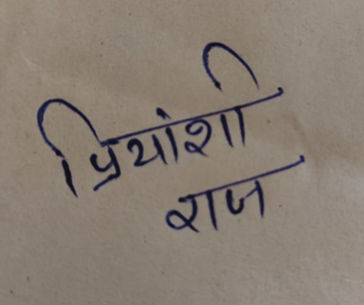 प्रियांशी
राज